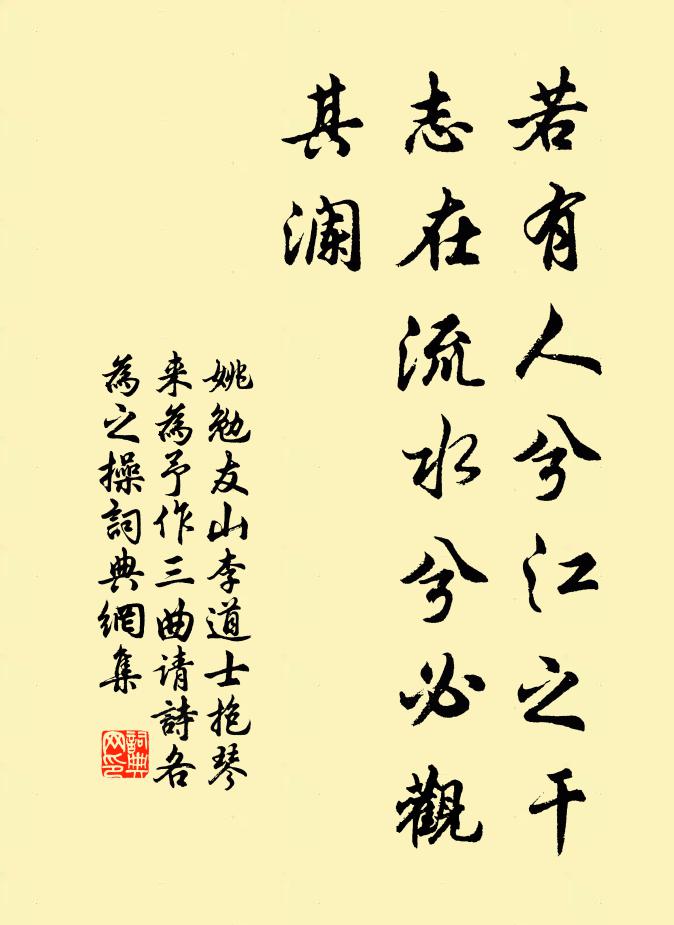 若有人兮江之干
志在流水兮必觀
其澜
姚勉友山李道士抱琴
来為予作三曲请詩各
為之操詞典網集
詞典网印